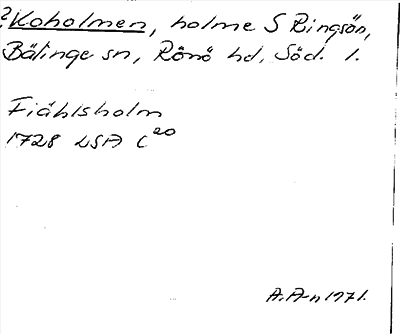 ?Koholmen, holme S Ringsön,
Bälinge sn, Rönö hd, Söd. l.
Fiählsholm
1728 LSA C20
A.A-n 1971.